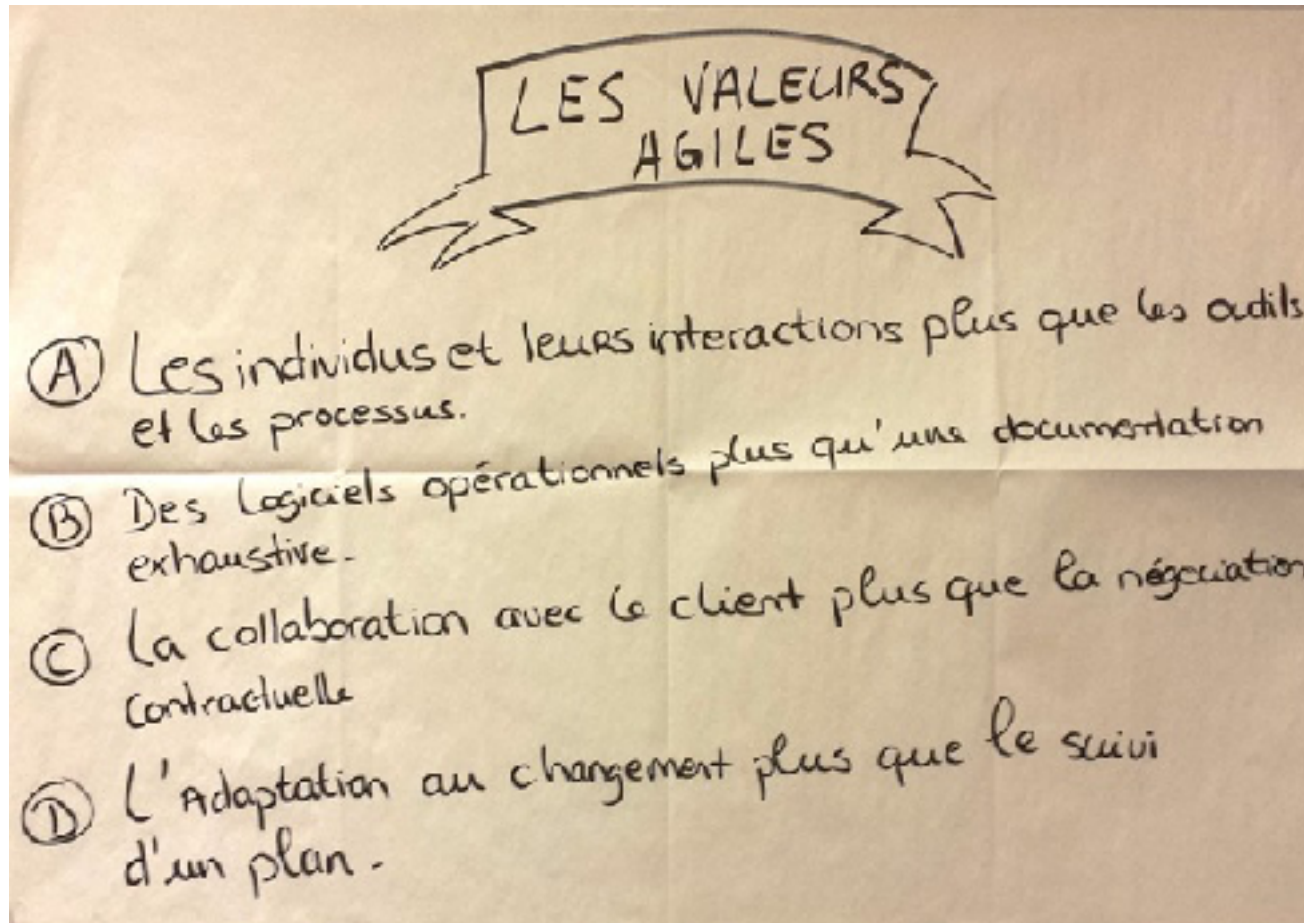 LES VALEURS
AGILES
A Les individus et leurs interactions plus que les outils
et les processus.
B Des logiciels opérationnels plus qu'une documentation
exhaustive.
C La collaboration avec le client plus que la négociation
contractuelle
D L'Adaptation au changement plus que le suivi
d'un plan.